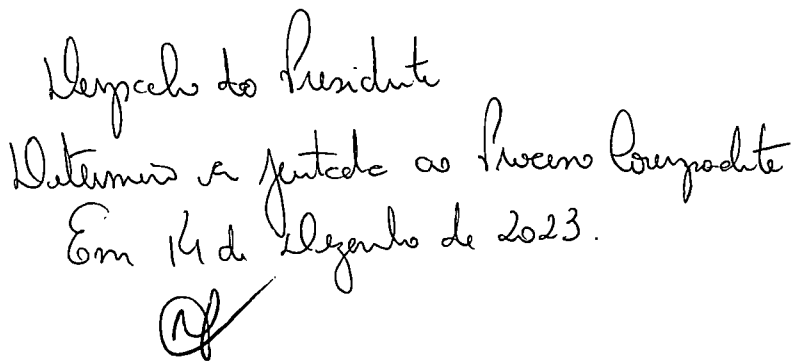 Despacho do Presidente
Determino a juntada ao Processo Correspondente
Em 14 de Dezembro de 2023.